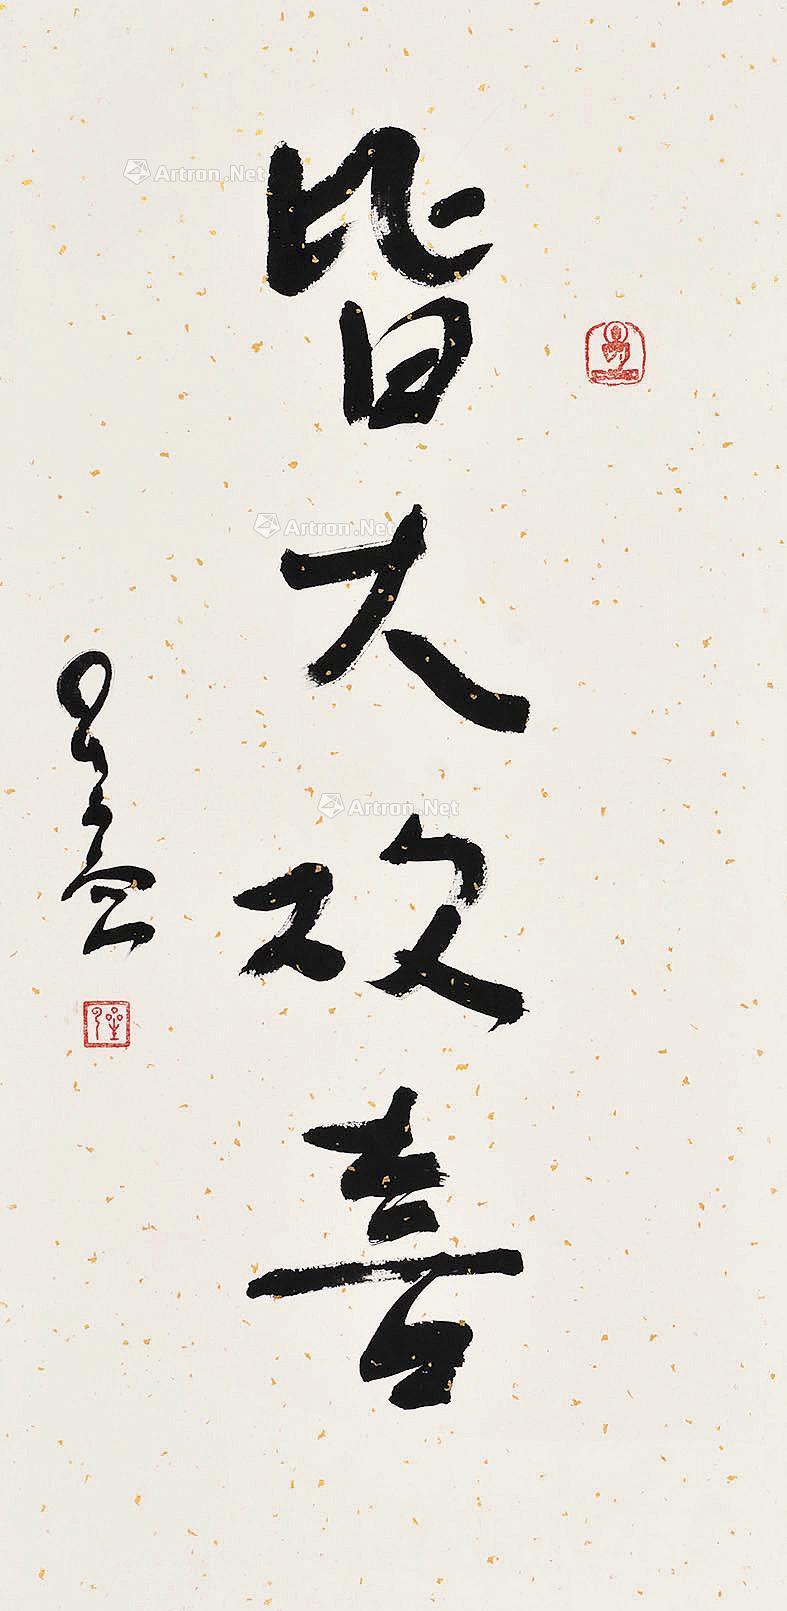 皆大欢喜
星云
Artron.Net
Artron.Net
Artron.Net